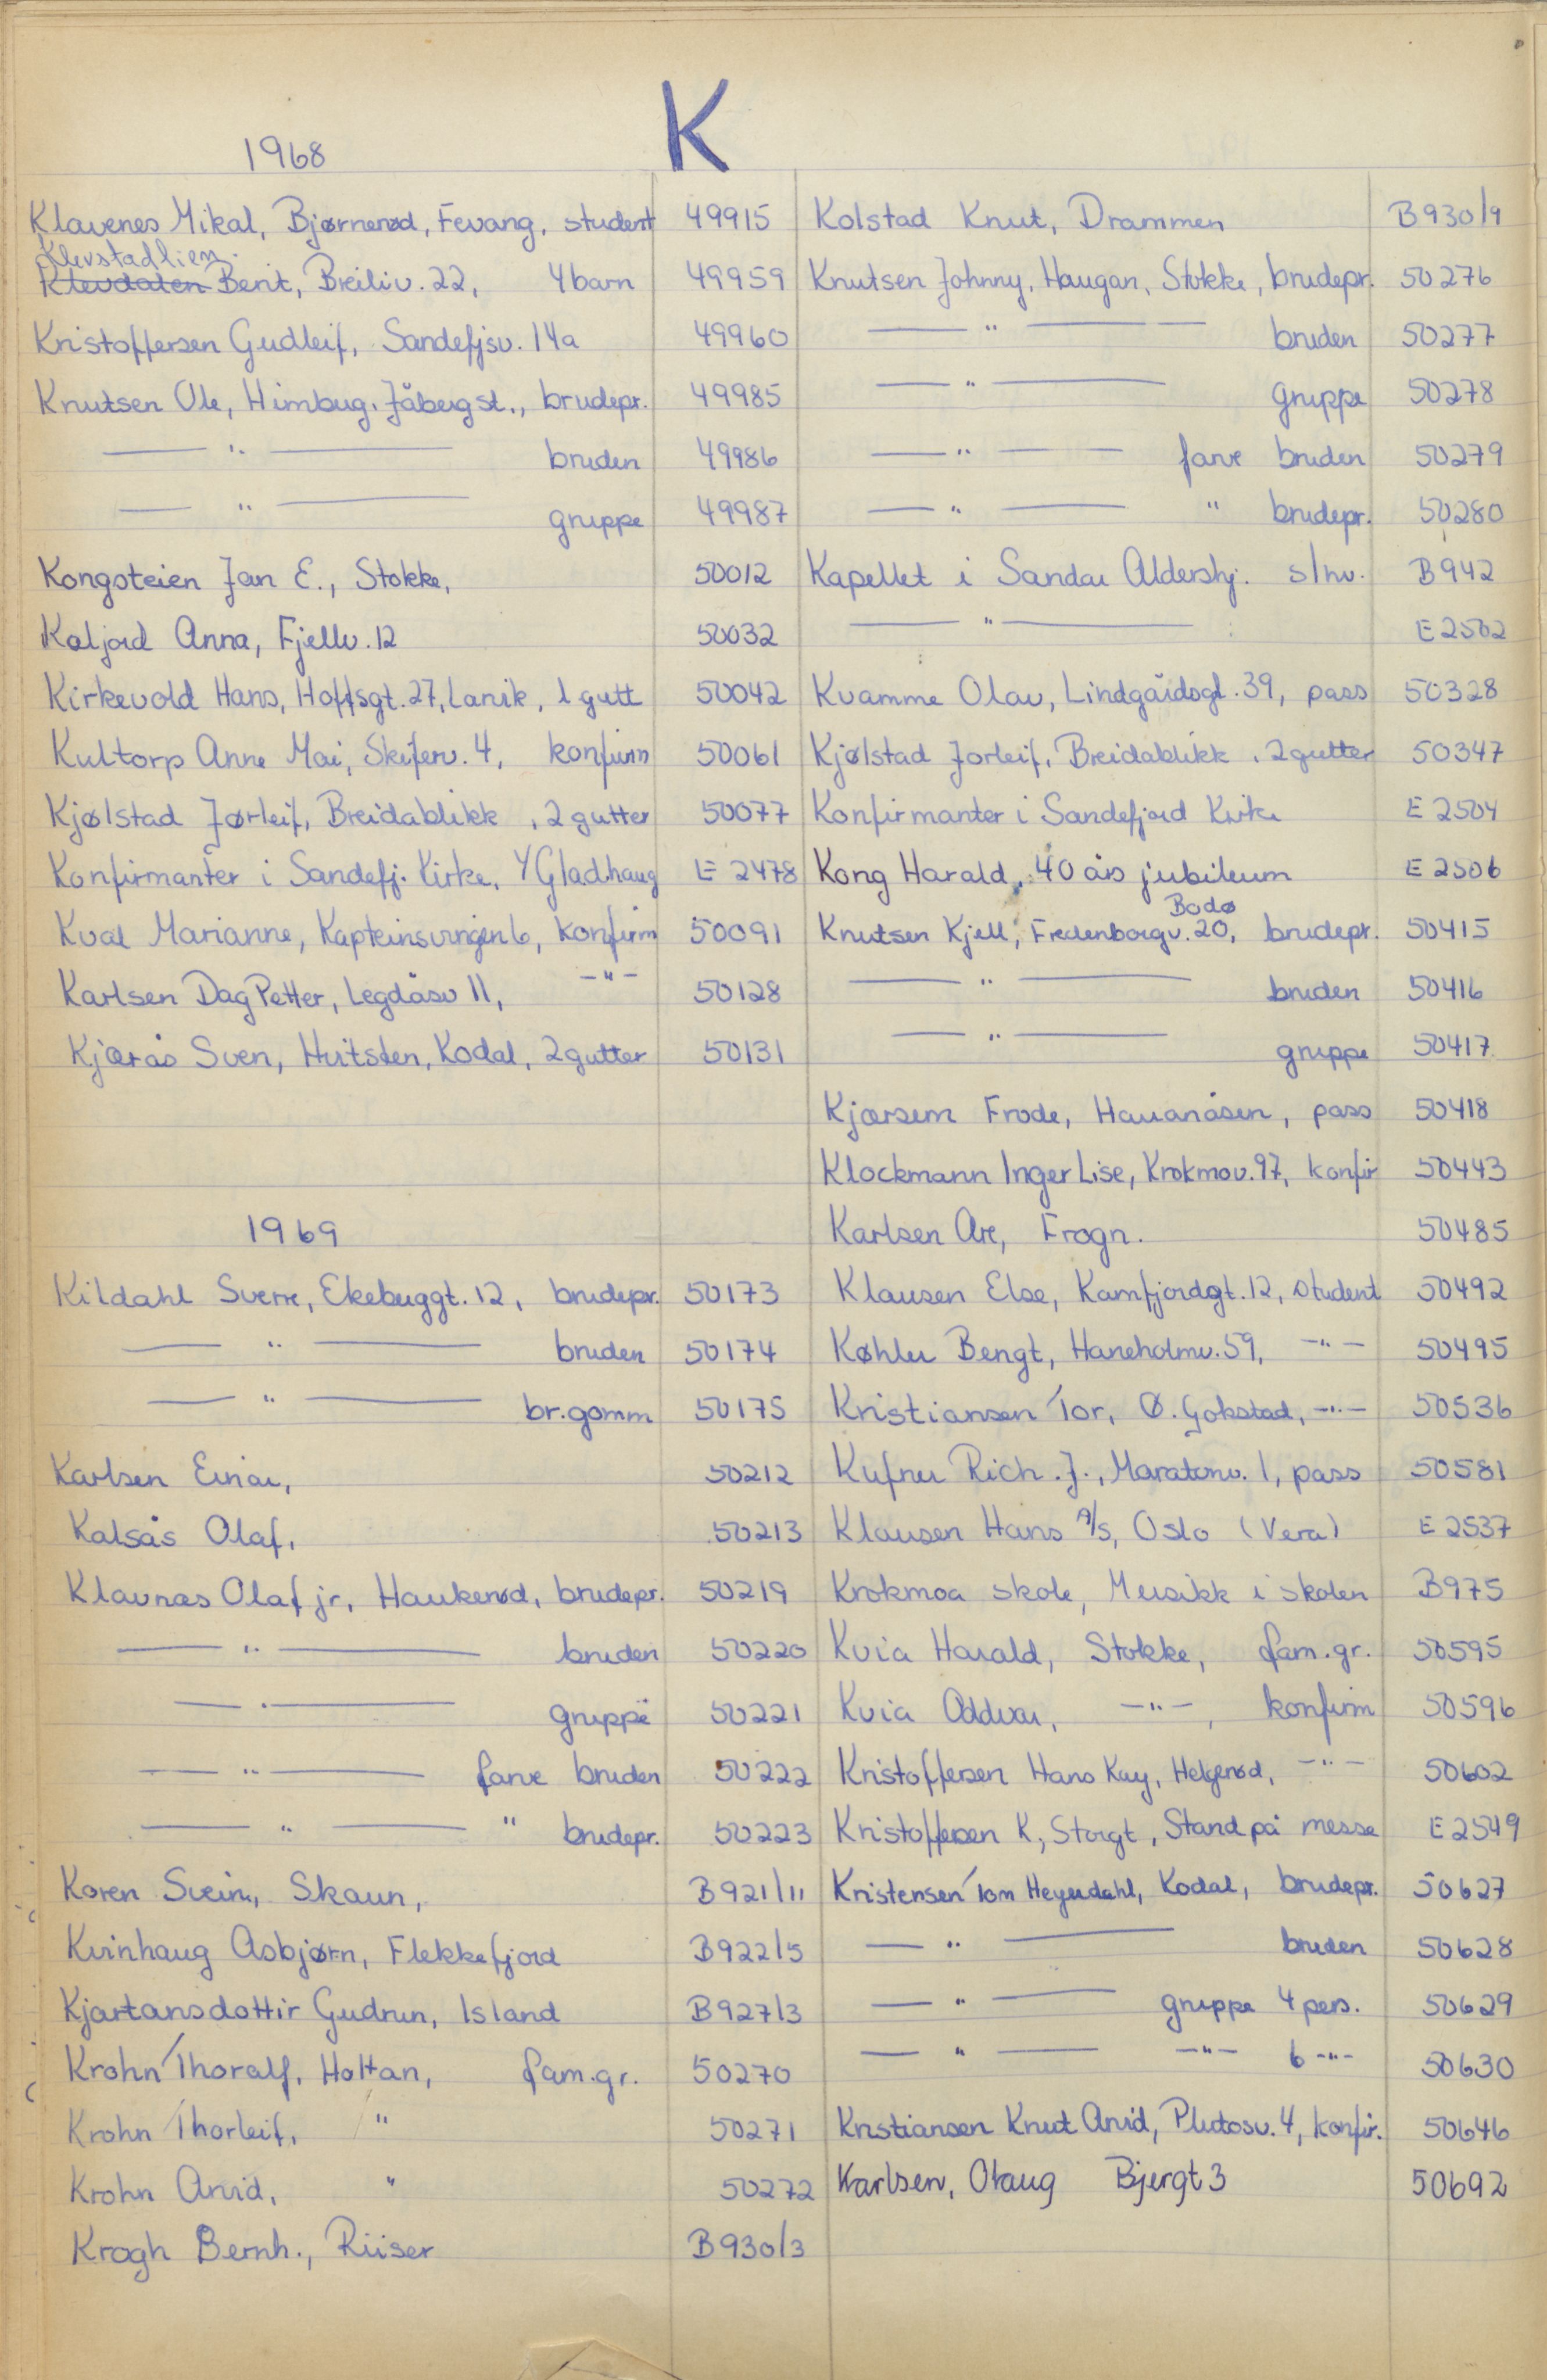 K
1968
Klavenes Mikal, Bjørnerød, Fevang, student 49915
Klevstadlien
Klevdalen Berit, Breiliv. 22, 4 barn 49959
Kristoffersen Gudleif, Sandefjsv. 14a 49960
Knutsen Ole, Himberg, Jåberg st., brudepr. 49985
— " — bruden 49986
— " — gruppe 49987
Kongsteien Jan E., Stokke, 50012
Kaljord Anna, Fjellv. 12 50032
Kirkevold Hans, Hoffsgt. 27, Larvik, 1 gutt 50042
Kultorp Anne Mai, Skiferv. 4, konfirm 50061
Kjølstad Jorleif, Breidablikk, 2 gutter 50077
Konfirmanter i Sandefj. Kirke, v/Gladhaug E 2478
Kval Marianne, Kapteinsvingen 6, konfirm 50091
Karlsen Dag Petter, Legdåsv 11, -"- 50128
Kjærås Sven, Hvitsten, Kodal, 2 gutter 50131
1969
Kildahl Sverre, Ekebuggt. 12, brudepr. 50173
— " — bruden 50174
— " — br.gomm 50175
Karlsen Einar, 50212
Kalsås Olaf, 50213
Klavnæs Olaf jr, Haukerød, brudepr. 50219
— " — bruden 50220
— " — gruppe 50221
— " — farve bruden 50222
— " — " brudepr. 50223
Koren Svein, Skaun, B921/11
Kvinhaug Asbjørn, Flekkefjord B922/5
Kjartansdottir Gudrun, Island B927/3
Krohn Thoralf, Holtan, fam.gr. 50270
Krohn Thorleif, " 50271
Krohn Arvid, " 50272
Krogh Bernh., Riiser B930/3
Kolstad Knut, Drammen B930/9
Knutsen Johnny, Haugan, Stokke, brudepr. 50276
— " — bruden 50277
— " — gruppe 50278
— " — farve bruden 50279
— " — " brudepr. 50280
Kapellet i Sandar Aldershj. s/hv. B942
— " — E 2502
Kvamme Olav, Lindgårdsgt. 39, pass 50328
Kjølstad Jorleif, Breidablikk, 2 gutter 50347
Konfirmanter i Sandefjord Kirke E 2504
Kong Harald, 40 års jubileum E 2506
Bodø
Knutsen Kjell, Fredenborgv. 20, brudepr. 50415
— " — bruden 50416
— " — gruppe 50417
Kjærsem Frode, Hauanåsen, pass 50418
Klockmann Inger Lise, Krokmov. 97, konfir 50443
Karlsen Are, Frogn. 50485
Klausen Else, Kamfjordgt. 12, student 50492
Køhler Bengt, Haneholmv. 59, -"- 50495
Kristiansen Tor, Ø. Gokstad, -"- 50536
Kufner Rich. J., Maratonv. 1, pass 50581
Klausen Hans A/S, Oslo (Vera) E 2537
Krokmoa skole, Musikk i skolen B975
Kvia Harald, Stokke, fam.gr. 50595
Kvia Oddvar, -"-, konfirm 50596
Kristoffersen Hans Kay, Helgerød, -"- 50602
Kristoffersen K, Storgt, Stand på messe E 2549
Kristensen Tom Heyerdahl, Kodal, brudepr. 50627
— " — bruden 50628
— " — gruppe 4 pers. 50629
— " — -"- 6 -"- 50630
Kristiansen Knut Arvid, Plutosv. 4, konfir. 50646
Karlsen, Olaug Bjergt 3 50692